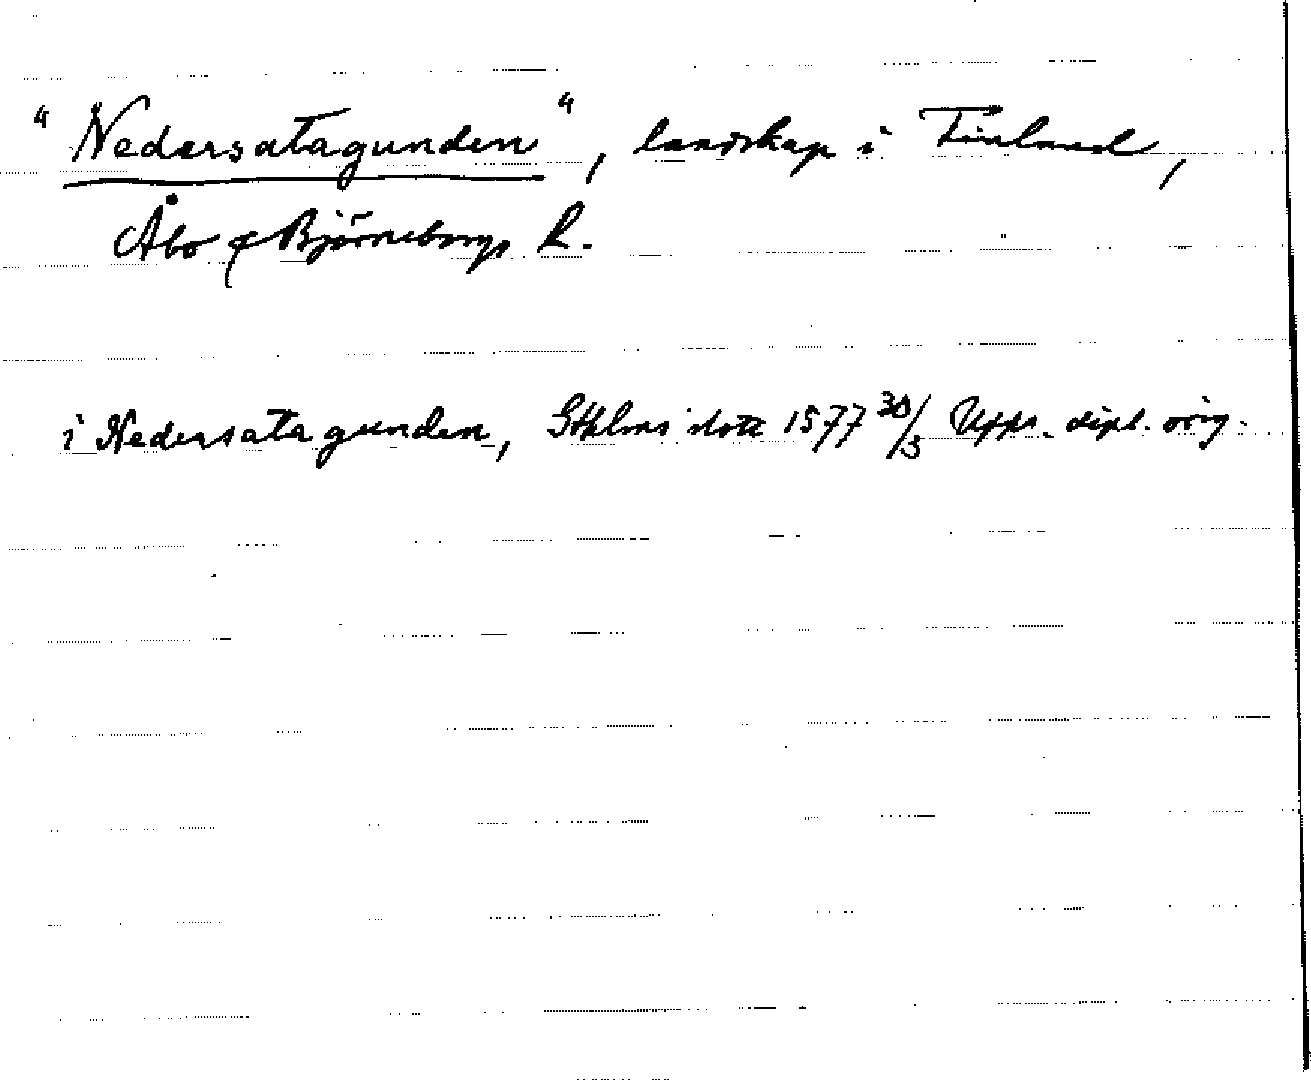 "Nedersatagunden", landskap i Finland,
Åbo & Björneborgs L.
i Nedersatagunden, Sthlms slott 1577 30/3 Upps. dipl. orig.